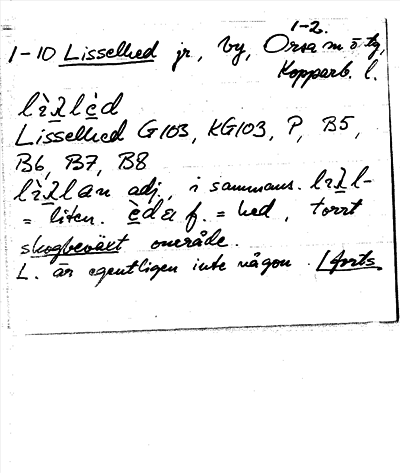 1-2.
1-10 Lisselhed jr., by, Orsa sn o tg,
Kopparb. l.
lìƛlèd
Lisselhed G103, KG103, P, B5,
B6, B7, B8
lìƛlan adj., i sammans. lıƛl-
= liten. èda f. = hed, torrt
skogbeväxt område.
L. är egentligen inte någon. /forts.